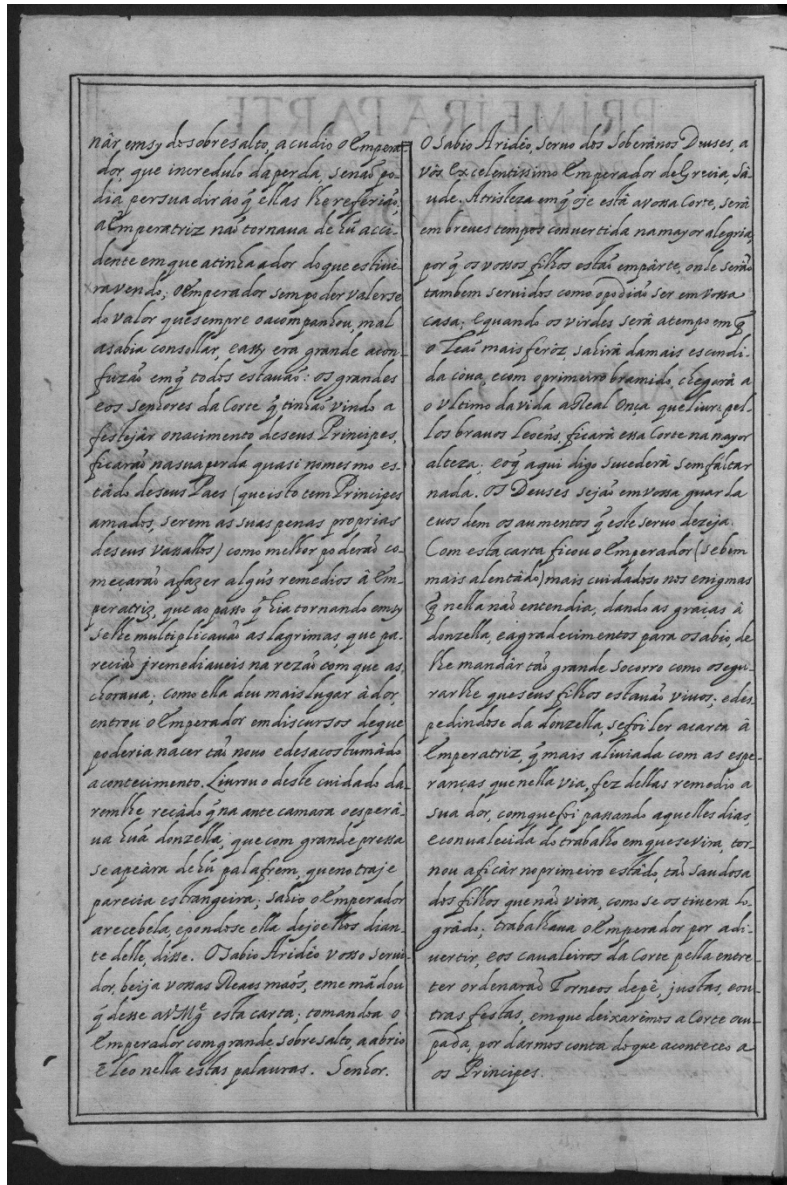 nâr, emsy do sobresalto, acudio o Empera-
dor, que incredulo da perda, senaõ po-
dia persuadir áo q̃ ellas lhe referiaõ,
a Emperatriz naõ tornava de hũ acci-
dente em que a tinha a dor do que estive-
ra vendo; o Emperador sem poder valerse
do valor que sempre o acompanhou, mal
a sabia consollar, e assy era grande a con-
fuzaõ em q̃ todos estavaõ: os grandes
e os senhores da Corte q̃ tinhaõ vindo a
festejár o nacimento de seus Principes,
ficaraõ na sua perda quasi no mesmo es-
tâdo de seus Paes (que isto tem Principes
amados, serem as suas penas proprias
de seus vassallos) como melhor poderaõ co-
meçaraõ a fazer algũs remedios â Em-
peratriz, que ao passo q̃ hia tornando emsy
se lhe multiplicavaõ as lagrimas, que pa-
reciaõ jremediaveis na rezaõ com que as
chorava; como ella deu mais lugar â dor,
entrou o Emperador em discursos de que
poderia nacer taõ novo e desacostumâdo
acontecimento. Livrou o deste cuidado da-
remlhe recâdo q̃ na ante camara o esperâ-
va huã donzella, que com grande pressa
se apeàra de hũ palafrem, que no traje
parecia estrangeira; sahio o Emperador
a recebela, e pondose ella dejoelhos dian-
te delle, disse. O Sabio Aridêo vosso servi-
dor, beija vossas Reaes maõs, e me mãdou
q̃ desse a V Mg.e esta carta; tomandoa o
Emperador com grande sobresalto, a abrio
E leo nella estas palavras. Senhor.
O Sabio Aridêo, servo dos Soberânos Deuses, a
vôs Excelentissimo Emperador de Grecia, Sâ-
ude. A tristeza em q̃ oje està a vossa Corte, serâ
em breves tempos convertida na mayor alegria,
por q̃ os vossos filhos estaõ em pârte, onde seraõ
tambem servidos como o podiaõ ser em vossa
casa; e quando os virdes serâ a tempo em q̃
o Leaõ mais ferôz, sahirâ da mais escondi-
da cova, e com o primeiro bramido, chegarâ a
o ultimo da vida a Real Onça que livre pel-
los bravos Leoens, ficarâ essa Corte na mayor
alteza; e o q̃ aqui digo sucederâ sem fâltar
nada. Os Deuses sejaõ em vossa guarda
e vos dem os aumentos q̃ este servo dezeja.
Com esta carta ficou o Emperador (se bem
mais alentâdo) mais cuidadoso nos enigmas
q̃ nella naõ entendia, dando as graças â
donzella, e agradecimentos para o sabio, de
lhe mandâr taõ grande socorro como o segu-
rarlhe que seus filhos estavaõ vivos; e des-
pedindose da donzella, se foi ler a carta â
Emperatriz, q̃ mais aliviada com as espe-
ranças que nella via, fez dellas remedio a
sua dor, com que foi passando aquelles dias,
e convalecida do trabalho em que se vira, tor-
nou a ficâr no primeiro estâdo, taõ saudosa
dos filhos que naõ vira, como se os tivera lo-
grâdo; trabalhava o Emperador por a di-
vertir, e os cavaleiros da Corte pella entre-
ter ordenaraõ Torneos de pê, justas, e ou-
tras festas, em que deixarêmos a Corte ocu-
pada, por dârmos conta do que aconteceo a
os Principes.